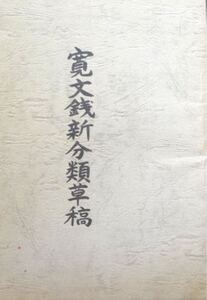 寛文銭新分類草稿